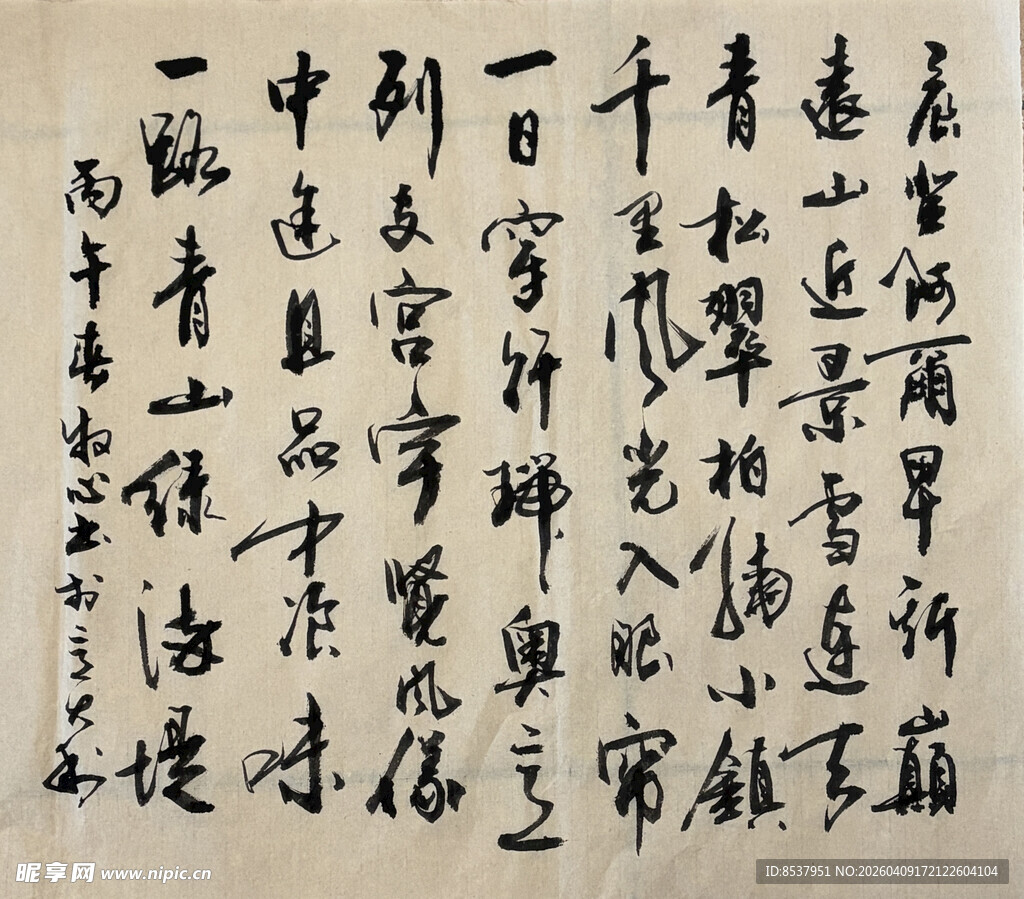 晨登阿爾卑斯巔
遠山近景雪連天
青松翠柏繡小鎮
千里風光入眼帘
一日穿行瑞奧意
列支宫宇覽風
中途且品中飡味
一路青山绿堤
丙午春牧心書於意大利
昵享网 www.nipic.cn
ID:8537951 NO:20260409172122604104